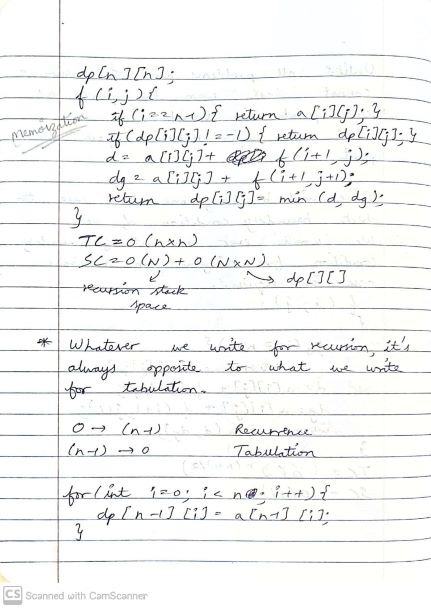 dp[n][n];
f(i,j){
if(i==n-1){ return a[i][j]; }
Memoization
if(dp[i][j]!=-1){ return dp[i][j]; }
d= a[i][j]+ f(i+1, j);
dg = a[i][j] + f(i+1, j+1);
return dp[i][j]= min (d, dg);
}
TC = O(nxn)
SC = O(N) + O(NxN)
↙ ↘ dp[][]
recursion stack
space
* Whatever we write for recursion, it's
always opposite to what we write
for tabulation.
0 → (n-1) Recurrence
(n-1) → 0 Tabulation
for(int i=0; i< n; i++){
dp[n-1][i]= a[n-1][i];
}
CS Scanned with CamScanner